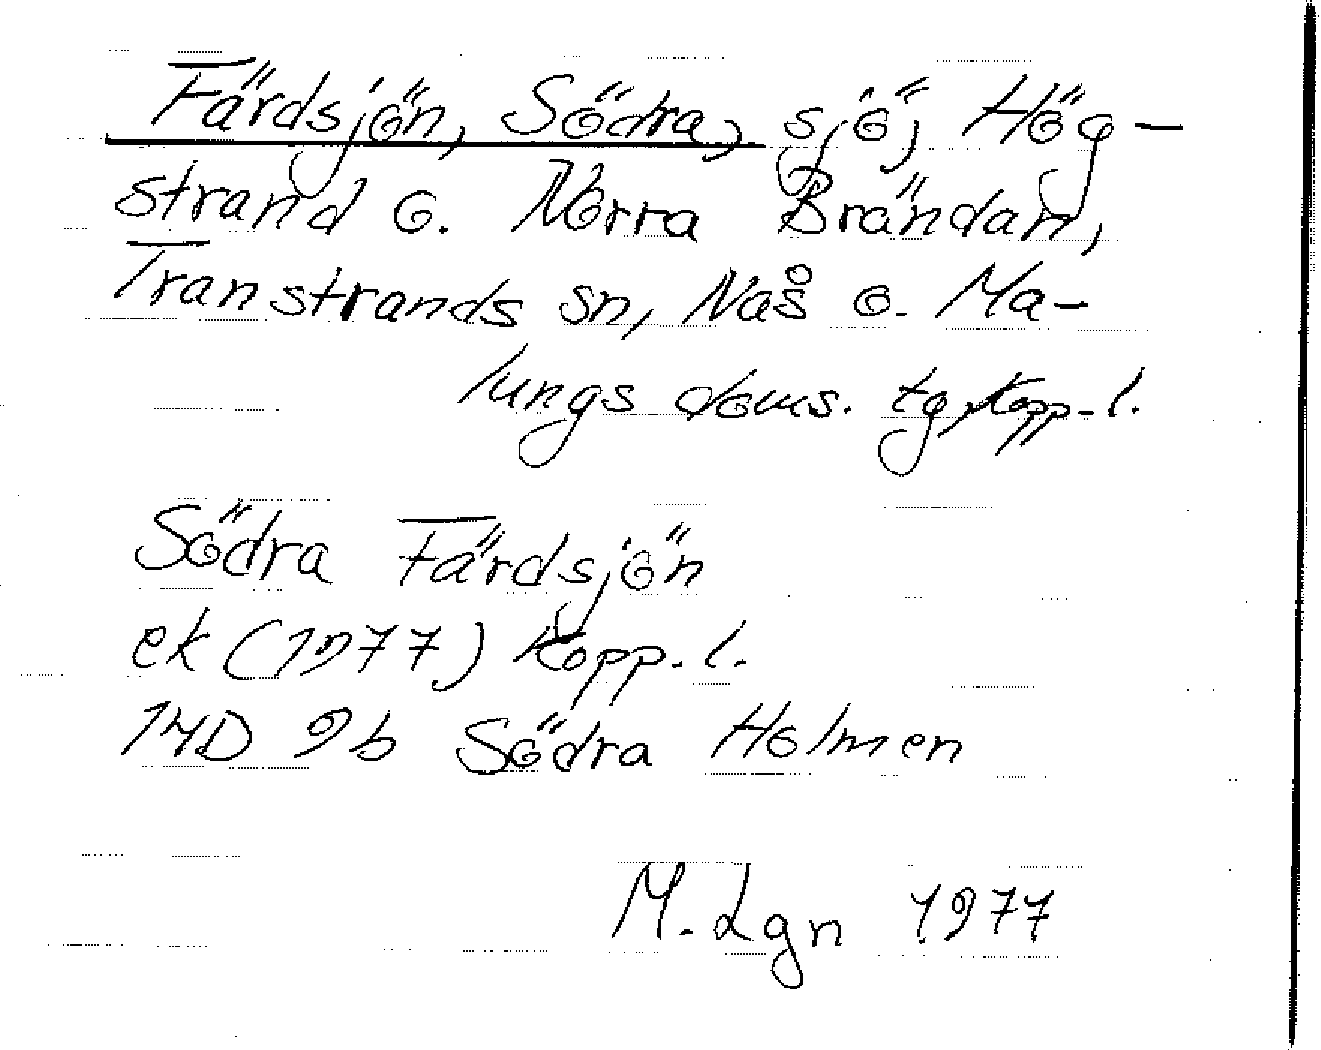 Färdsjön, Södra, sjö, Hög-
strand o. Norra Brändan,
Transtrands sn, Nås o. Ma-
lungs doms. tg, Kopp. l.
Södra Färdsjön
ek (1977) Kopp. l.
14D 9b Södra Holmen
M. Lgn 1977